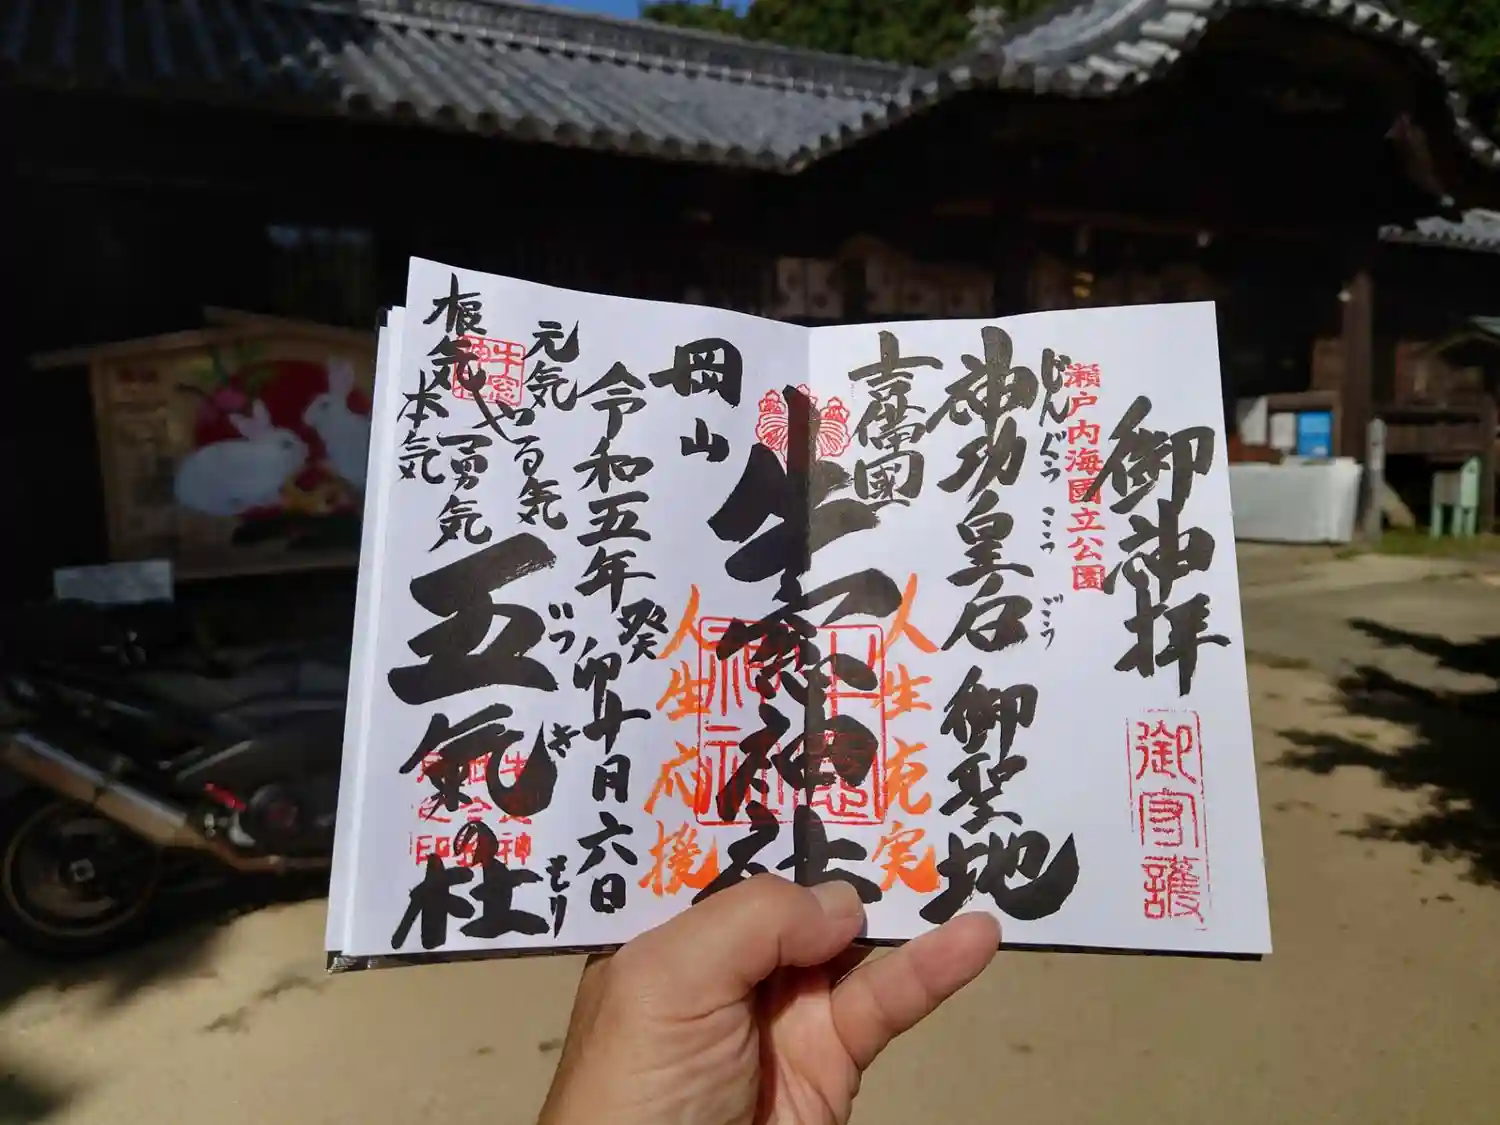 御神拝
御守護
瀬戸内海國立公園
じんぐう
こうごう
神功皇后 御聖地
吉備國
人生充実
牛窓神社
岡山
人生応援
令和五年癸卯十月六日
元気
やる気
根気
勇気
本気
五氣の杜
いつ
き
もり
牛窓